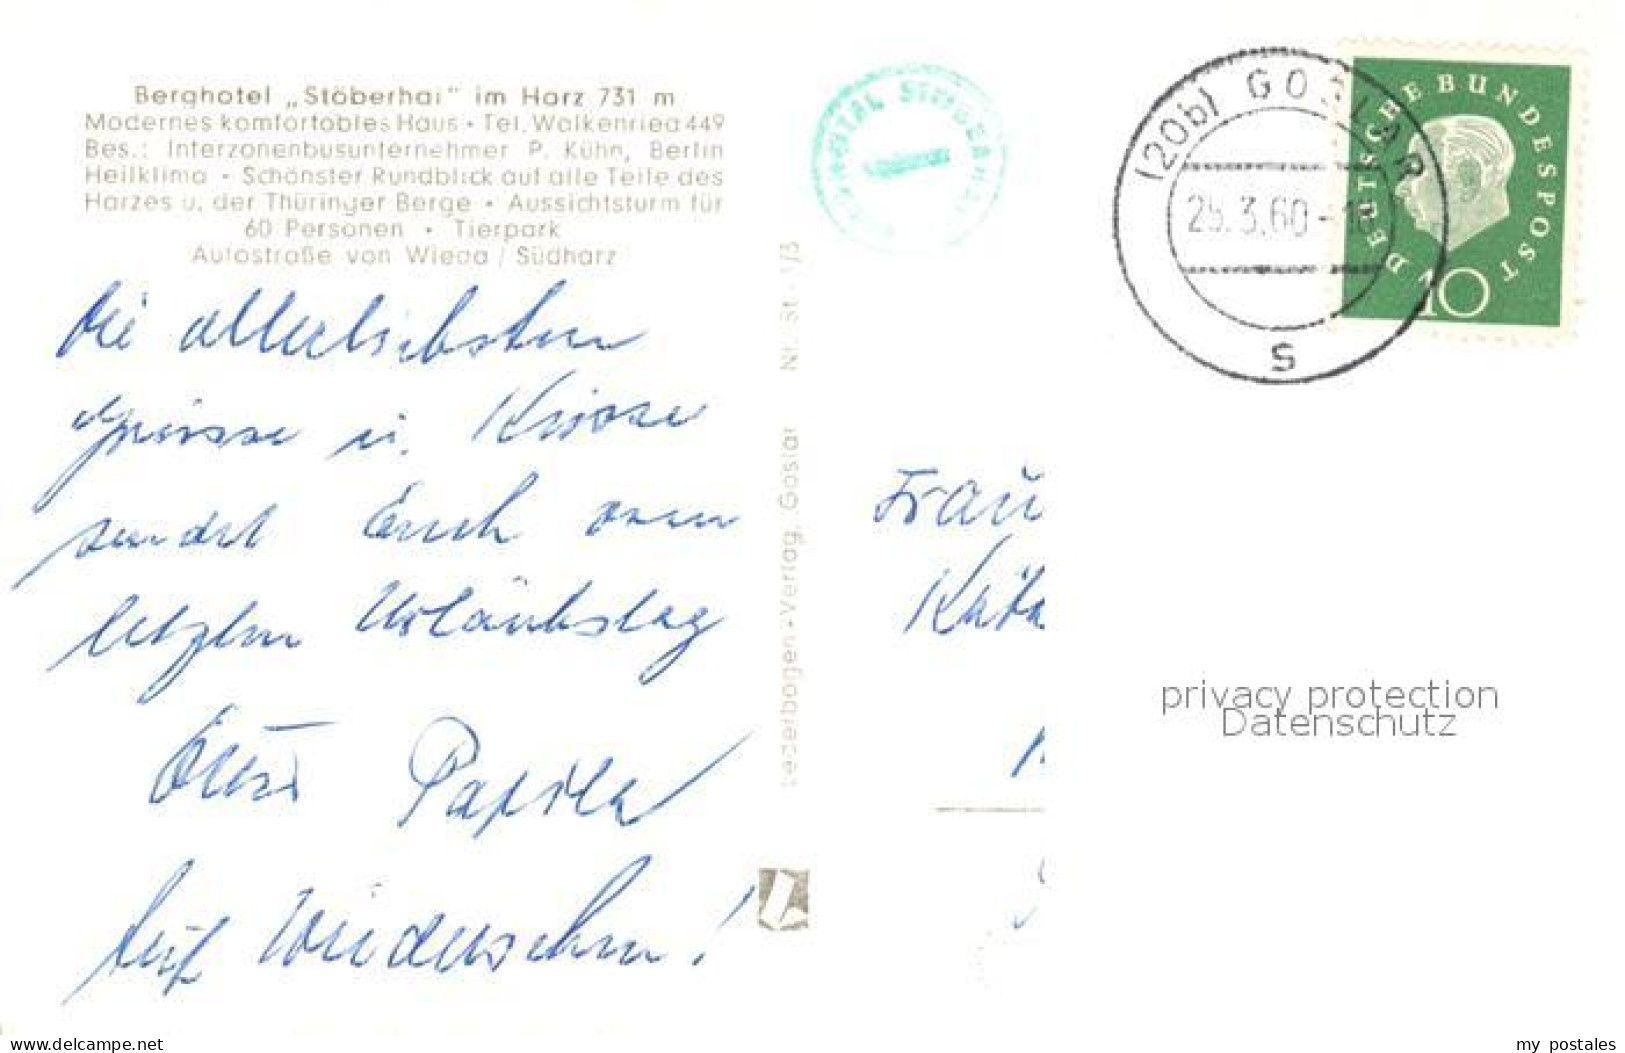 Berghotel „Stöberhai" im Harz 731 m
Modernes komfortables Haus • Tel. Walkenried 449
Bes.: Interzonenbusunternehmer P. Kühn, Berlin
Heilklima • Schönster Rundblick auf alle Teile des
Harzes u. der Thüringer Berge • Aussichtsturm für
60 Personen • Tierpark
Autostraße von Wieda / Südharz
Die allerliebsten
Grüsse u. Küsse
sendet Euch vom
letzten Urlaubstag
Euer Papila
Auf Wiedersehen!
Lederbogen-Verlag, Goslar Nr. St. 1/3
BERGHOTEL STÖBERHAI
(20b) GOSLAR
25.3.60-18
s
DEUTSCHE BUNDESPOST
10
Frau
privacy protection
Datenschutz
www.delcampe.net
my_postales